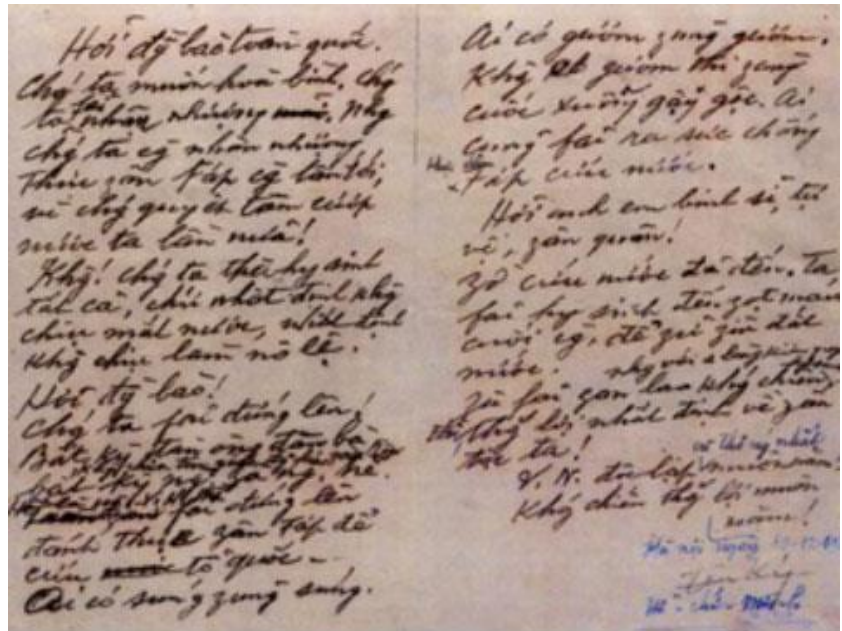 Hỡi đỹ bào toàn quốc.
Chý ta muốn hoà bình, chý
ta fải nhân nhượng. Nhg
chý ta cg nhân nhượng
thực zân Fáp cg lấn tới,
vì chý quyết tâm cướp
nước ta lần nữa!
Khg! chý ta thà hy sinh
tất cả, chứ nhất định khg
chịu mất nước, nhất định
khg chịu làm nô lệ.
Hỡi đỹ bào!
Chý ta fải đứng lên!
Bất kỳ đàn ông đàn bà
bất kỳ ng già ng trẻ.
fải đứng lên
đánh thực zân Fáp để
cứu tổ quốc
Ai có súng zùng súng.
Ai có gươm zùng gươm.
Khg có gươm thì zùng
cuốc xuổng gậy gộc. Ai
cũng fải ra sức chống
Fáp cứu nước.
Hỡi anh em binh sĩ, tự
vệ, zân quân!
Zờ cứu nước đã đến. Ta
fải hy sinh đến zọt máu
cuối cg, để zữ zìn đất
nước.
Zù fải zan lao khg chiến
thg lợi nhất định về zân
tộc ta!
V.N. độc lập
và thống nhất
muôn năm!
Khg chiến thg lợi muôn
năm!
Hà nội ngày
Hồ chí Minh